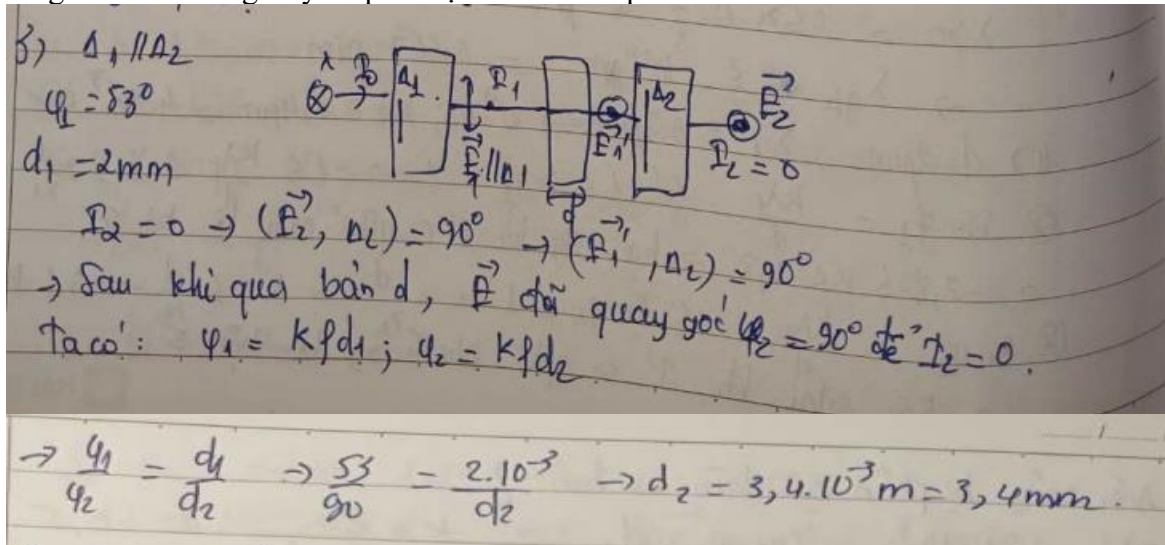 b) Δ₁ // Δ₂
φ₁ = 53°
d₁ = 2mm
λ I₀ Δ₁ I₁ E₁ // Δ₁ d E₁' Δ₂ E₂ I₂ = 0
I₂ = 0 → (E₂, Δ₂) = 90° → (E₁', Δ₂) = 90°
→ Sau khi qua bản d, E đã quay góc φ₂ = 90° để I₂ = 0.
Ta có: φ₁ = kρd₁; φ₂ = kρd₂
→ φ₁/φ₂ = d₁/d₂ → 53/90 = 2.10⁻³/d₂ → d₂ = 3,4.10⁻³m = 3,4mm.